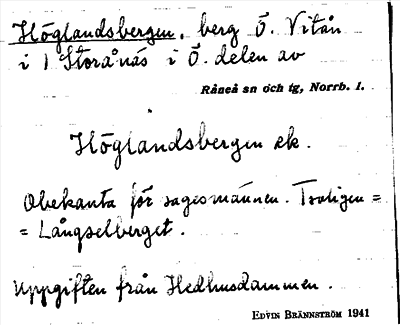 Höglandsbergen, berg Ö. Vitån
i 1 Storånäs i Ö. delen av
Råneå sn och tg, Norrb. l.
Höglandsbergen ek.
Obekanta för sagesmännen. Troligen =
= Långselberget.
Uppgiften från Hedhusdammen.
EDVIN BRÄNNSTRÖM 1941